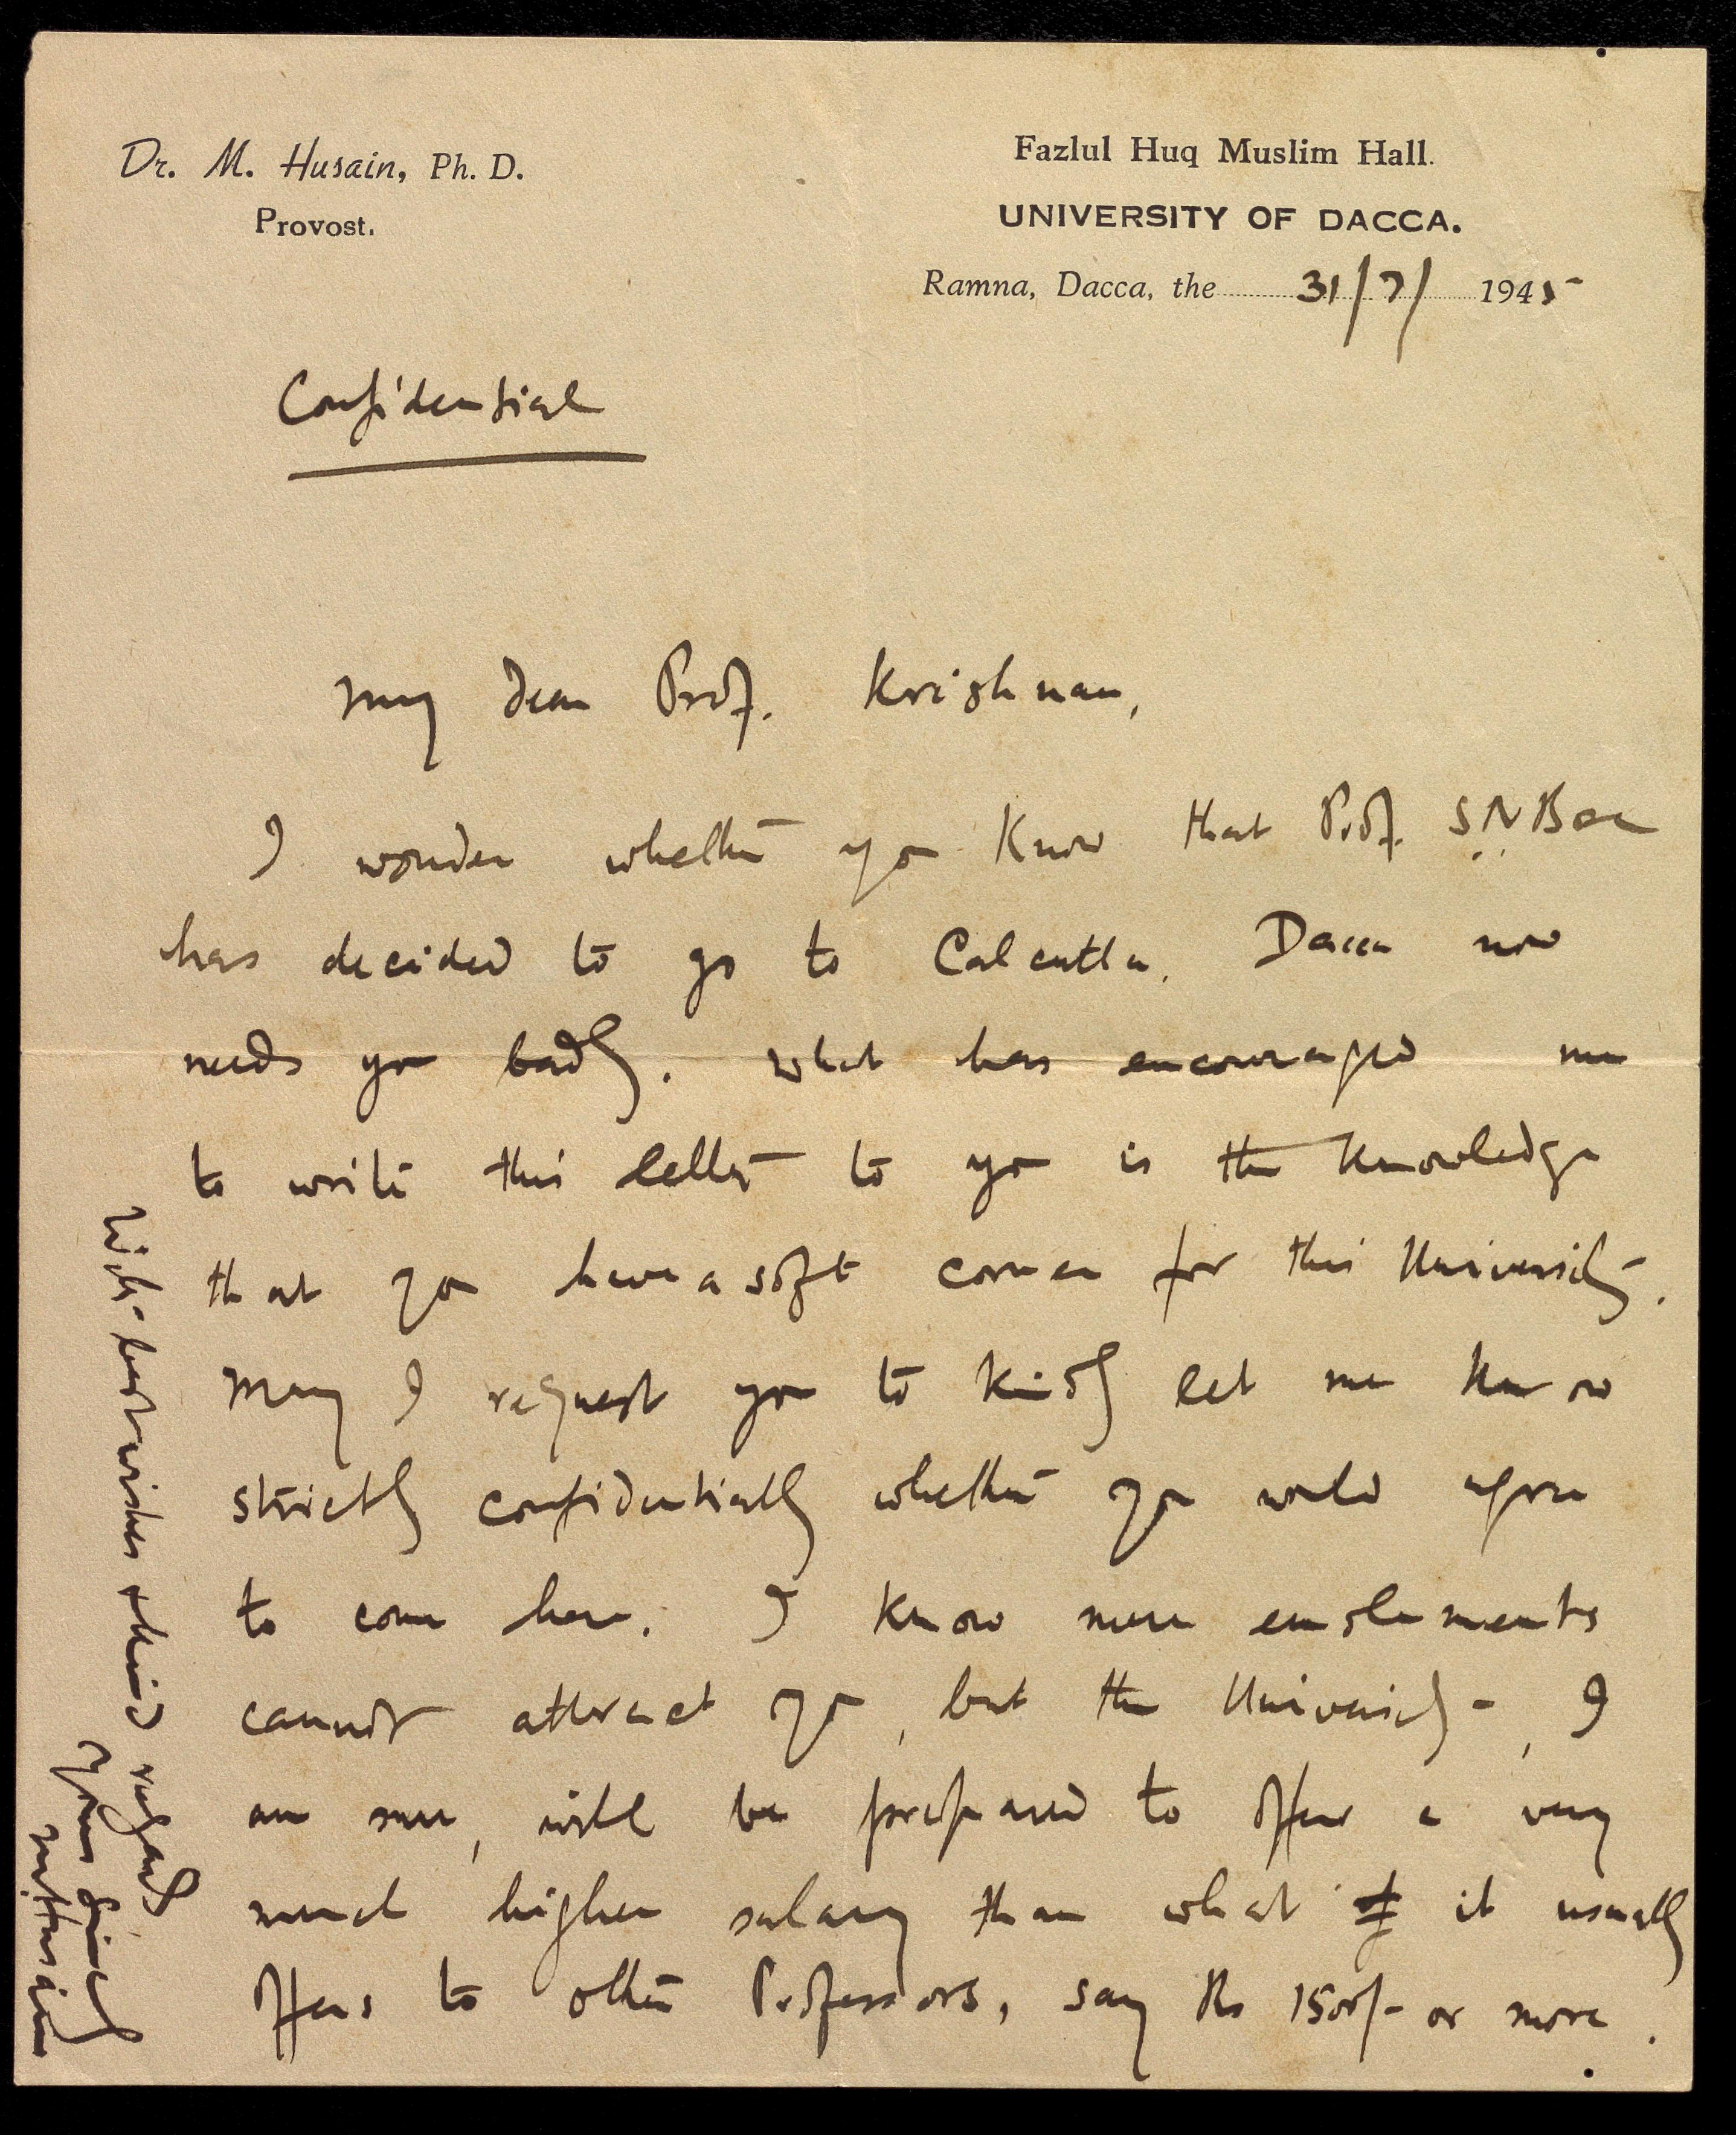 Dr. M. Husain, Ph. D.
Provost.
Fazlul Huq Muslim Hall.
UNIVERSITY OF DACCA.
Ramna, Dacca, the 31/7/ 1945
Confidential
My dear Prof. Krishnan,
I wonder whether you know that Prof. S.N. Bose
has decided to go to Calcutta. Dacca now
needs you badly. What has encouraged me
to write this letter to you is the knowledge
that you have a soft corner for this University.
May I request you to kindly let me know
strictly confidentially whether you would agree
to come here. I know mere emoluments
cannot attract you, but the University, I
am sure, will be prepared to offer a very
much higher salary than what it usually
offers to other Professors, say Rs 1500/- or more.
With best wishes & kind regards
Yours sincerely
M. Husain